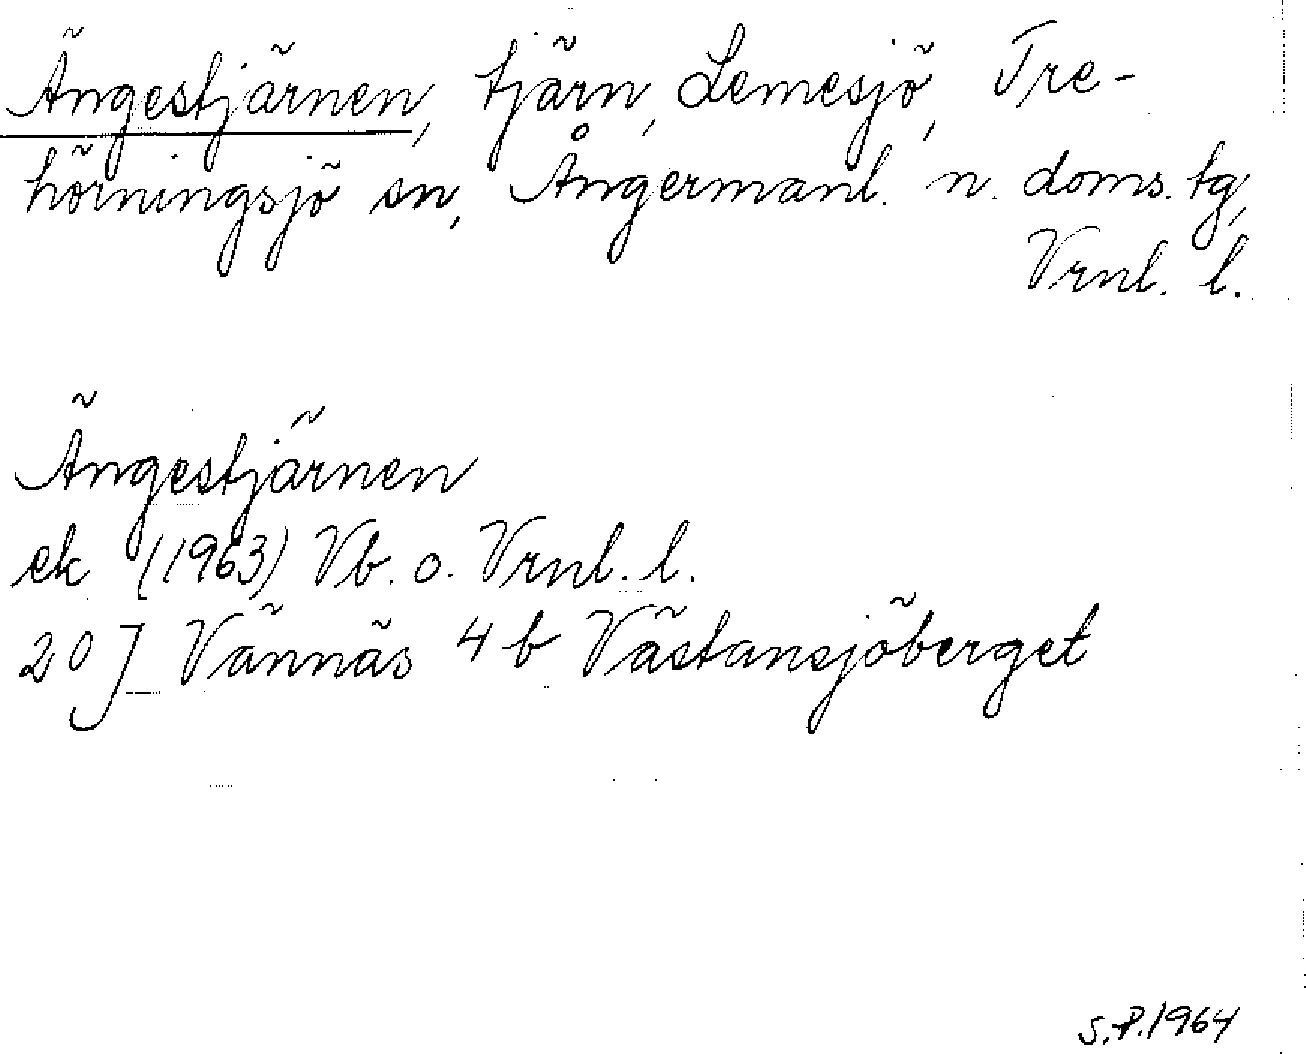 Ängestjärnen, tjärn, Lemesjö, Tre-
hörningsjö sn, Ångermanl. n. doms. tg,
Vrnl. l.
Ängestjärnen
ek (1963) Vb. o. Vrnl. l.
20 J Vännäs 4 b Västansjöberget
S.P. 1964